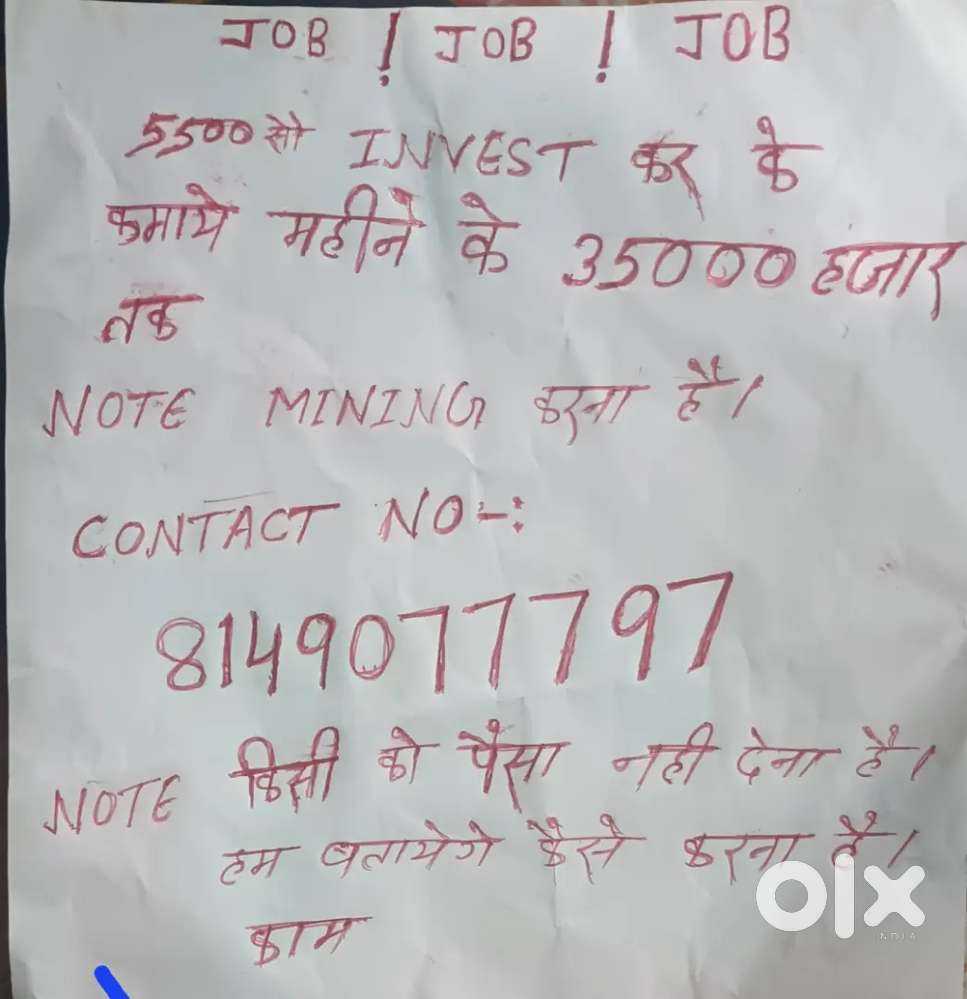 JOB ! JOB ! JOB
5500 सो INVEST कर के
कमाये महीने के 35000 हजार
तक
NOTE MINING करना है।
CONTACT NO-:
8149077797
NOTE किसी को पैसा नही देना है।
हम बतायेगे कैसे करना है।
काम
olx
INDIA